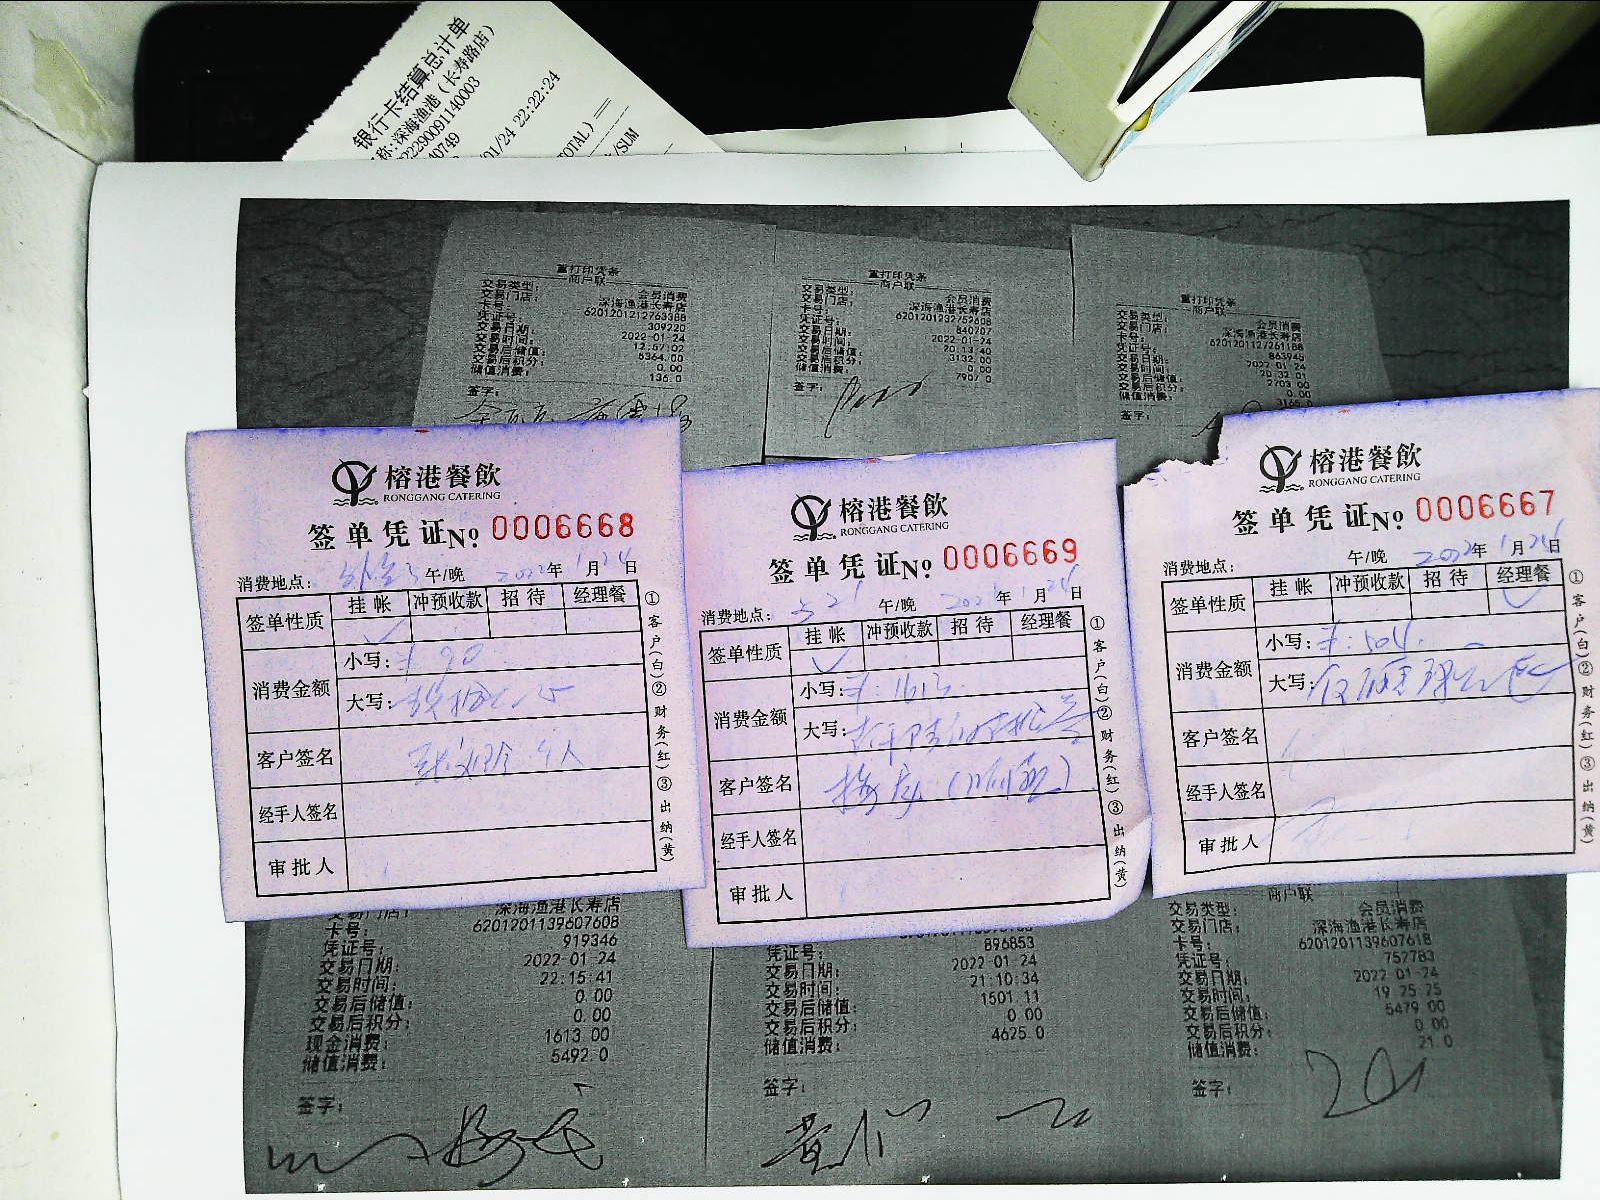 银行卡结算总计单
称:深海渔港(长寿路店)
222290091140003
40749
/01/24 22:22:24
TOTAL)
/SUM
重打印凭条
商户联
交易类型: 会员消费
交易门店: 深海渔港长寿店
卡号: 6201201212763388
凭证号: 309220
交易日期: 2022-01-24
交易时间: 12:57:02
交易后储值: 6364.00
交易后积分: 0.00
储值消费: 136.0
签字:
重打印凭条
商户联
交易类型: 会员消费
交易门店: 深海渔港长寿店
卡号: 6201201232752608
凭证号: 840787
交易日期: 2022-01-24
交易时间: 20:13:40
交易后储值: 3132.00
交易后积分: 0.00
储值消费: 7907.0
签字:
重打印凭条
商户联
交易类型: 会员消费
交易门店: 深海渔港长寿店
卡号: 6201201127261188
凭证号: 863945
交易日期: 2022-01-24
交易时间: 20:32:01
交易后储值: 2703.00
交易后积分: 0.00
储值消费: 3165.0
签字:
榕港餐飲
RONGGANG CATERING
签单凭证No. 0006668
消费地点: 午/晚 2022年1月24日
签单性质 挂帐 冲预收款 招待 经理餐
消费金额 小写: 90
大写:
客户签名
经手人签名
审批人
①客户(白)②财务(红)③出纳(黄)
榕港餐飲
RONGGANG CATERING
签单凭证No. 0006669
消费地点: 午/晚 2022年1月24日
签单性质 挂帐 冲预收款 招待 经理餐
消费金额 小写: 1613
大写:
客户签名
经手人签名
审批人
①客户(白)②财务(红)③出纳(黄)
榕港餐飲
RONGGANG CATERING
签单凭证No. 0006667
消费地点: 午/晚 2022年1月24日
签单性质 挂帐 冲预收款 招待 经理餐
消费金额 小写: 504
大写:
客户签名
经手人签名
审批人
①客户(白)②财务(红)③出纳(黄)
交易门店: 深海渔港长寿店
卡号: 6201201139607608
凭证号: 919346
交易日期: 2022-01-24
交易时间: 22:15:41
交易后储值: 0.00
交易后积分: 0.00
现金消费: 1613.00
储值消费: 5492.0
签字:
凭证号: 896853
交易日期: 2022-01-24
交易时间: 21:10:34
交易后储值: 1501.11
交易后积分: 0.00
储值消费: 4625.0
签字:
商户联
交易类型: 会员消费
交易门店: 深海渔港长寿店
卡号: 6201201139607618
凭证号: 752783
交易日期: 2022-01-24
交易时间: 19:25:25
交易后储值: 5479.00
交易后积分: 0.00
储值消费: 21.0
签字: